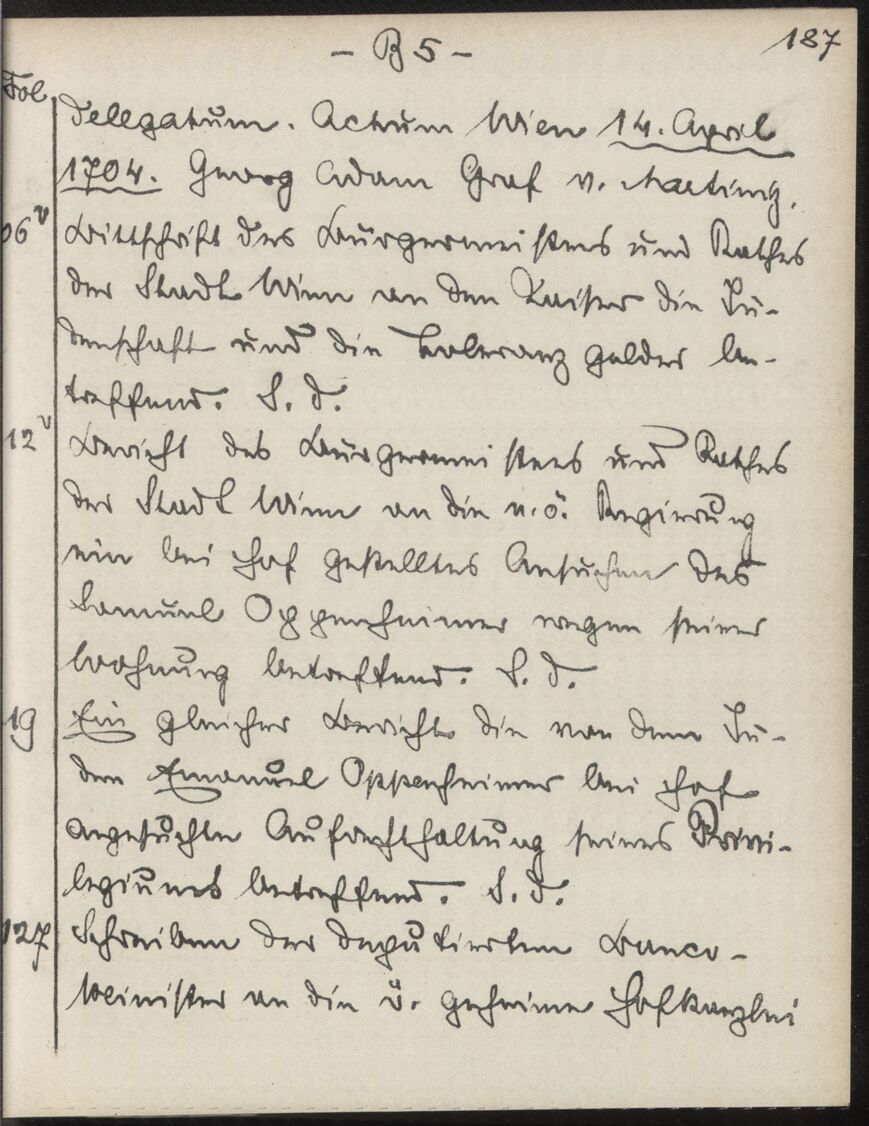 – B 5 –
187
Fol
delegatum. Actum Wien 14. April
1704. Georg Adam Graf v. Martinitz.
06v Bittschrift des Bürgermeisters und Rathes
der Stadt Wien an den Kaiser die Ju-
denschaft und die Toleranzgelder be-
treffend. S. d.
12v Bericht des Bürgermeisters und Rathes
der Stadt Wien an die n. ö. Regierung
ein bei Hof gestelltes Ansuchen des
Samuel Oppenheimer wegen seiner
Wohnung betreffend. S. d.
19 Ein gleicher Bericht die von dem Ju-
den Emanuel Oppenheimer bei Hof
angesuchte Aufrechthaltung seines Privi-
legiums betreffend. S. d.
127 Schreiben der deputierten Banco-
Minister an die ö. geheime Hofkanzlei